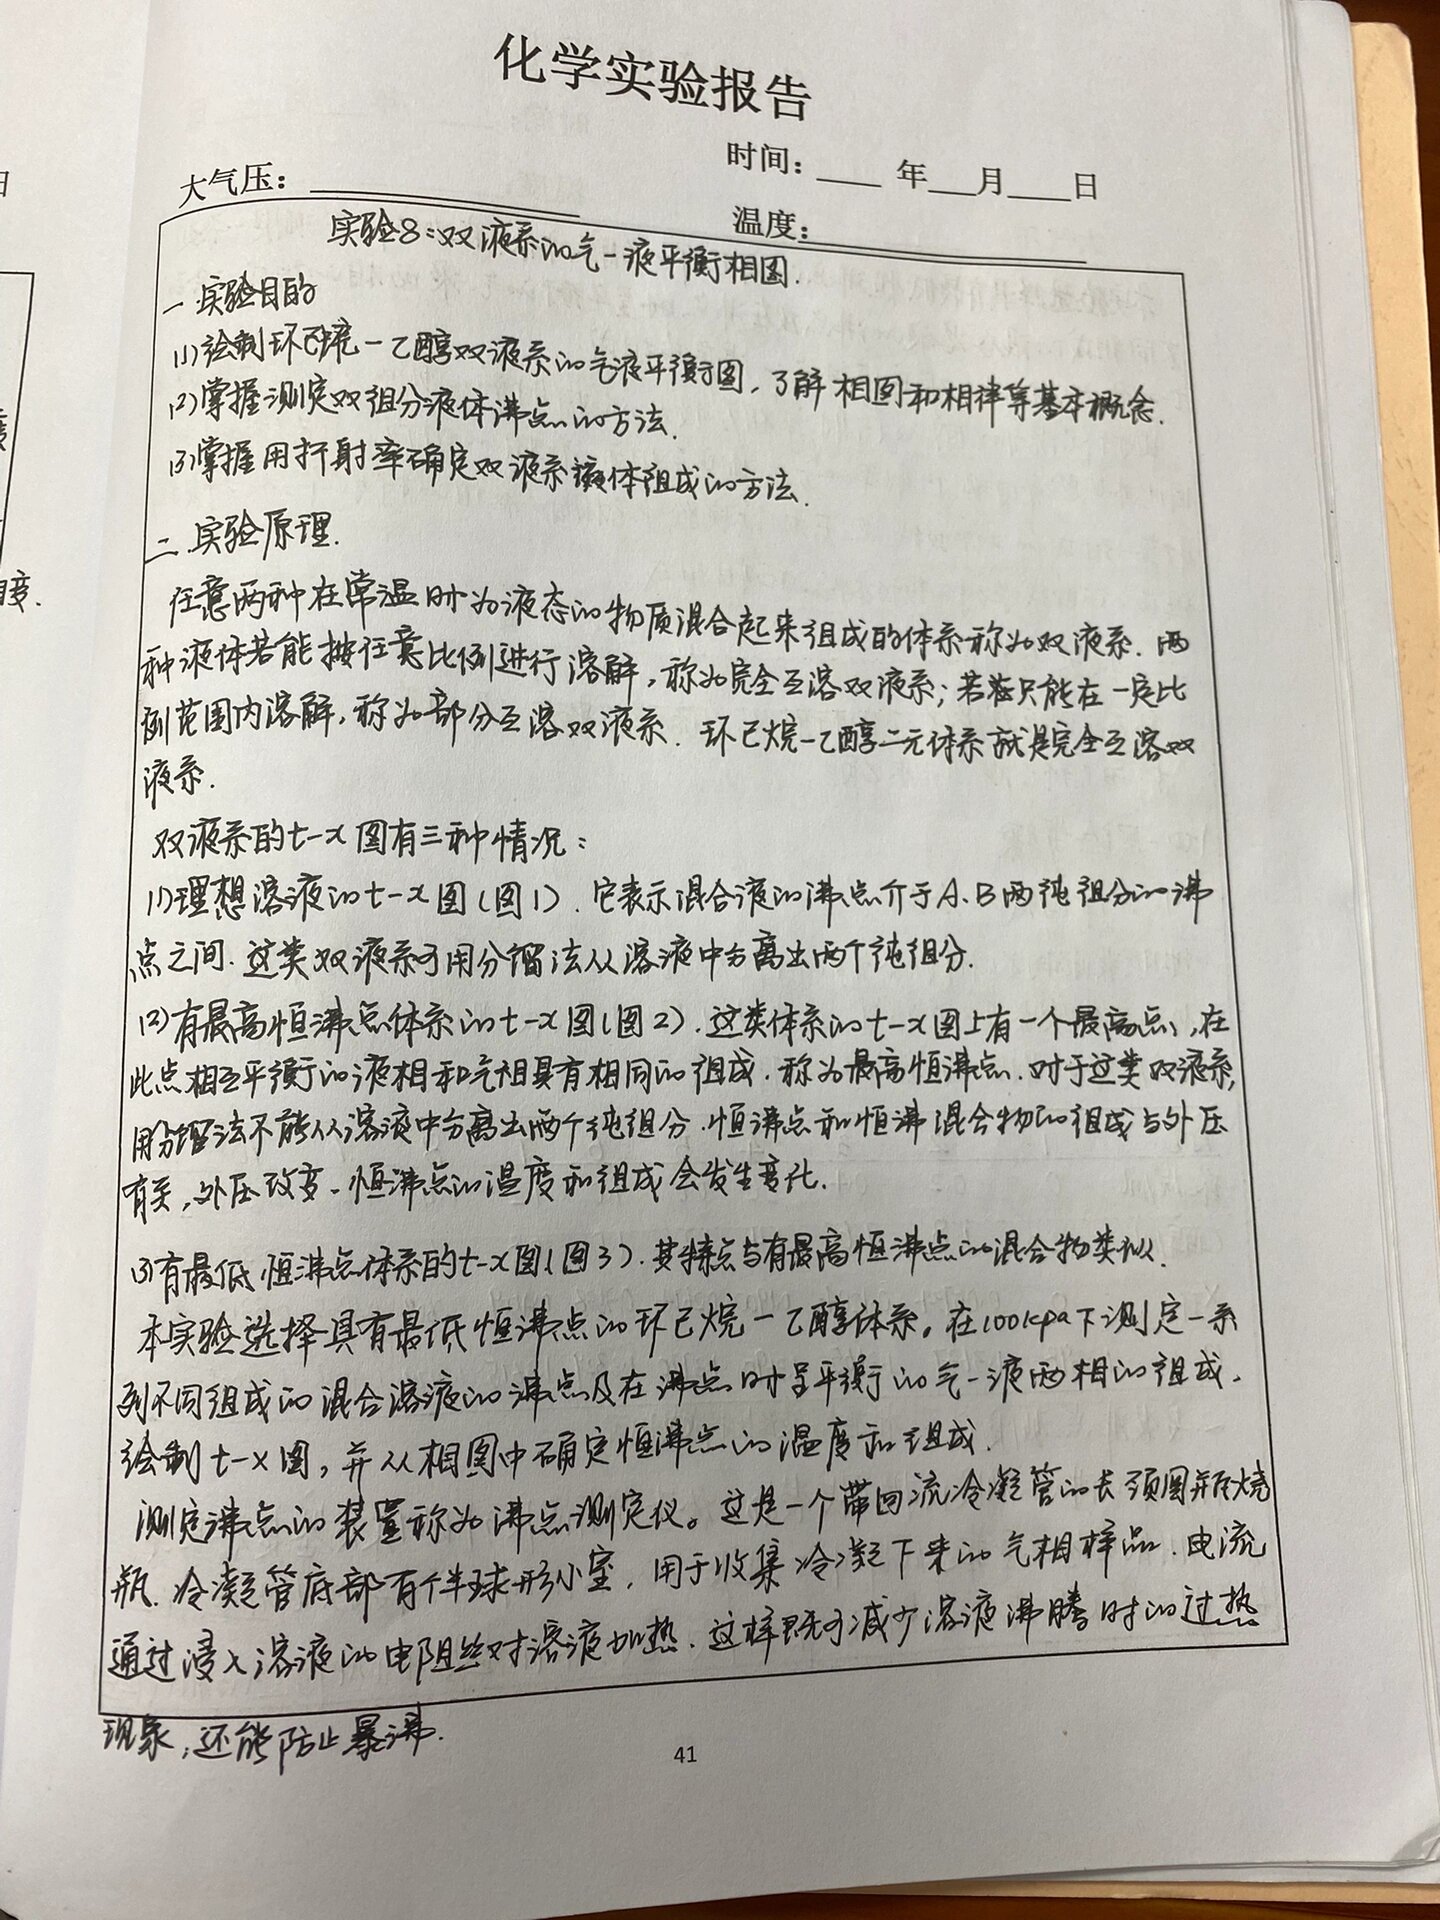 化学实验报告
时间：____年___月____日
大气压：
温度：
实验8：双液系的气-液平衡相图.
一.实验目的
(1)绘制环己烷-乙醇双液系的气液平衡图，了解相图和相律等基本概念.
(2)掌握测定双组分液体沸点的方法.
(3)掌握用折射率确定双液系液体组成的方法.
二.实验原理.
任意两种在常温时为液态的物质混合起来组成的体系称为双液系.两
种液体若能按任意比例进行溶解，称为完全互溶双液系；若只能在一定比
例范围内溶解，称为部分互溶双液系.环己烷-乙醇二元体系就是完全互溶双
液系.
双液系的t-x图有三种情况：
(1)理想溶液的t-x图(图1).它表示混合液的沸点介于A、B两纯组分的沸
点之间.这类双液系可用分馏法从溶液中分离出两个纯组分.
(2)有最高恒沸点体系的t-x图(图2).这类体系的t-x图上有一个最高点，在
此点相互平衡的液相和气相具有相同的组成.称为最高恒沸点.对于这类双液系，
用分馏法不能从溶液中分离出两个纯组分.恒沸点和恒沸混合物的组成与外压
有关，外压改变、恒沸点的温度和组成会发生变化.
(3)有最低恒沸点体系的t-x图(图3).其特点与有最高恒沸点的混合物类似.
本实验选择具有最低恒沸点的环己烷-乙醇体系。在100kpa下测定一系
列不同组成的混合溶液的沸点及在沸点时呈平衡的气-液两相的组成，
绘制t-x图，并从相图中确定恒沸点的温度和组成.
测定沸点的装置称为沸点测定仪。这是一个带回流冷凝管的长颈圆底烧
瓶.冷凝管底部有个半球形小室，用于收集冷凝下来的气相样品.电流
通过浸入溶液的电阻丝对溶液加热.这样既可减少溶液沸腾时的过热
现象，还能防止暴沸.
41
日
度.